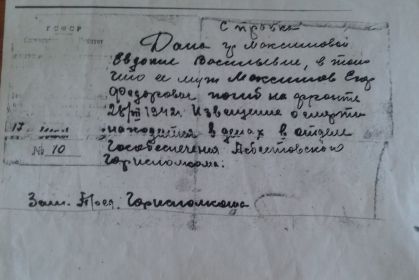 РСФСР
Справка
Дана гр Максимовой
Евдокие Васильевне, в том
что ее муж Максимов Егор
Федорович погиб на фронте
28/III 1942г. Извещение о смерти
находится в делах в отделе
Гособеспечения Асбестовского
Горисполкома.
17
№ 10
Зам. Пред. Горисполкома